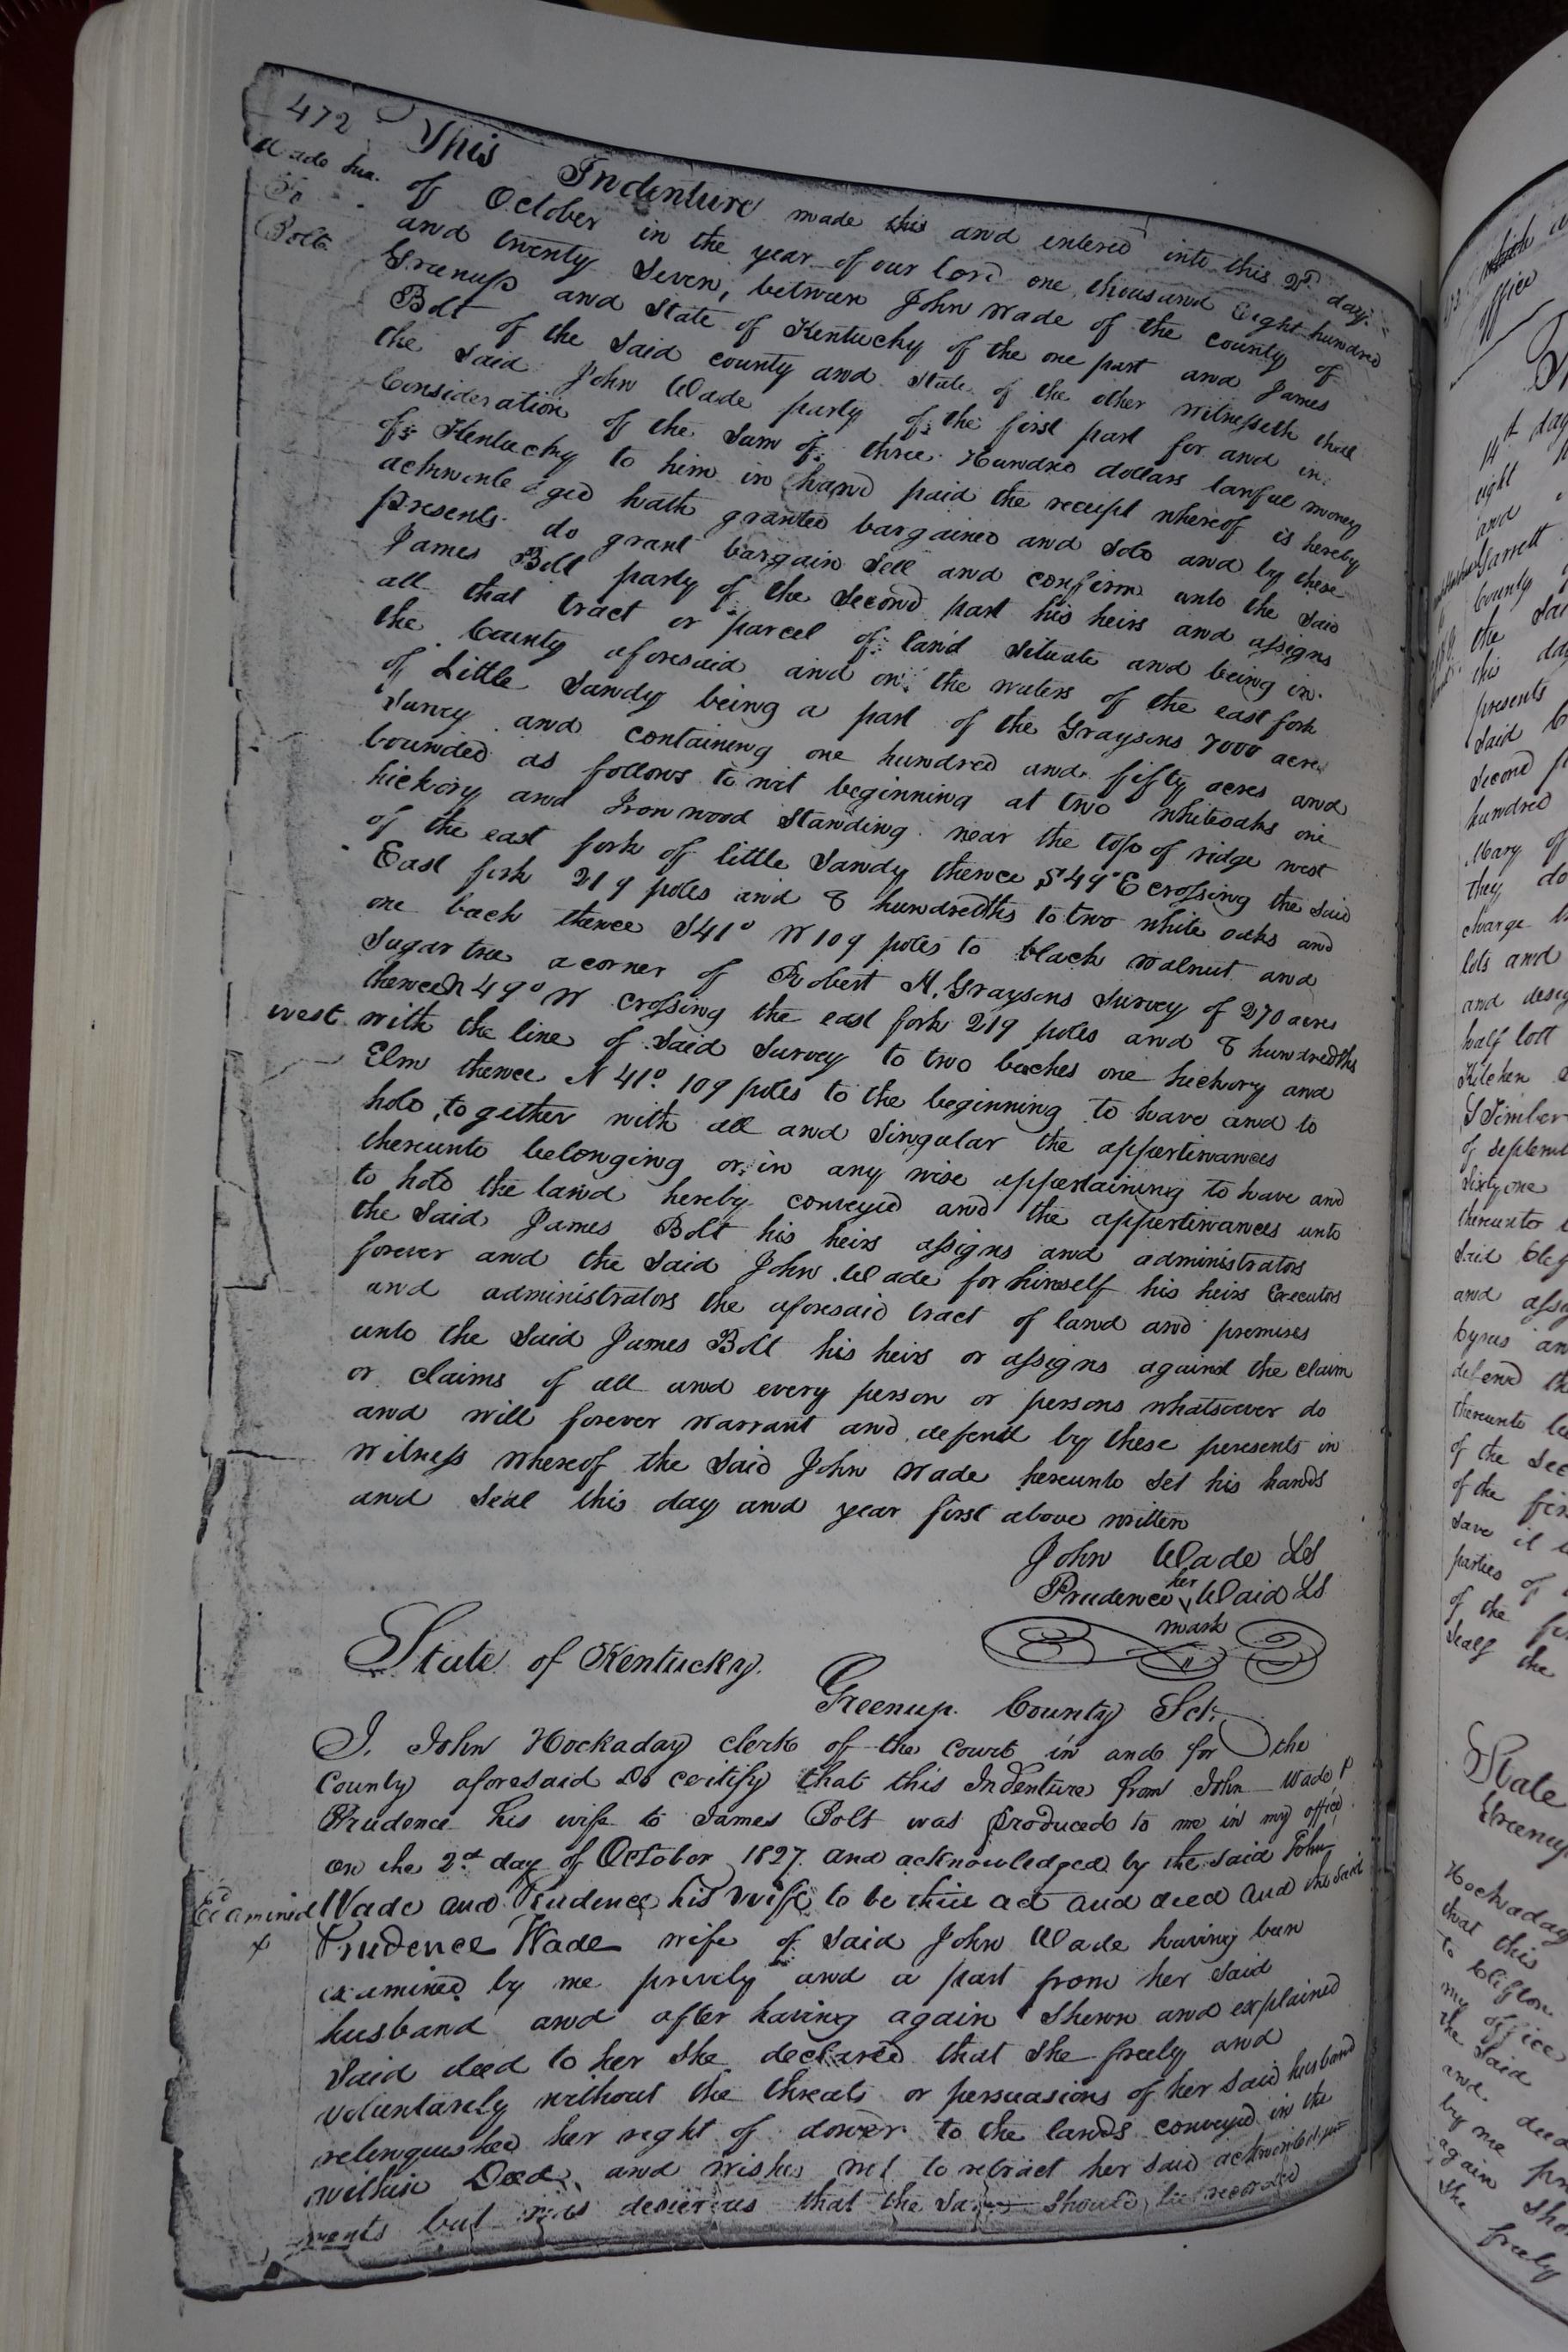 472
Wade &ux.
To
Bolt
This Indenture made this and entered into this 2d. day
of October in the year of our lord one thousand Eight hundred
and twenty Seven, between John Wade of the county of
Greenup and State of Kentucky of the one part and James
Bolt of the Said county and State of the other witnesseth that
the Said John Wade party of the first part for and in
Consideration of the Sum of three Hundred dollars lawful money
of Kentucky to him in hand paid the receipt whereof is hereby
acknowledged hath granted bargained and Sold and by these
presents do grant bargain Sell and confirm unto the Said
James Bolt party of the Second part his heirs and assigns
all that tract or parcel of land Situate and being in
the County aforesaid and on the waters of the east fork
of Little Sandy being a part of the Graysons 7000 acre
Survey and containing one hundred and fifty acres and
bounded as follows to wit beginning at two whiteoaks one
hickory and Ironwood Standing near the top of ridge west
of the east fork of little Sandy thence S 49° E crossing the Said
East fork 219 poles and 8 hundredths to two white oaks and
one bach thence S 41° W 109 poles to black walnut and
Sugar tree a corner of Robert H. Graysons Survey of 270 acres
thence N 49° W crossing the east fork 219 poles and 8 hundredths
west with the line of Said Survey to two baches one hickory and
Elm thence N 41° 109 poles to the beginning to have and to
hold together with all and Singular the appertinances
thereunto belonging or in any wise appertaining to have and
to hold the land hereby conveyed and the appertinances unto
the Said James Bolt his heirs assigns and administrators
forever and the Said John Wade for himself his heirs Executors
and administrators the aforesaid tract of land and premises
unto the Said James Bolt his heirs or assigns against the claim
or claims of all and every person or persons whatsoever do
and will forever warrant and defend by these presents in
Witness whereof the Said John Wade hereunto Set his hands
and Seal this day and year first above written
John Wade LS
her
Prudence Waid LS
mark
State of Kentucky.
Greenup County Sct.
I. John Hockaday clerk of the court in and for the
County aforesaid Do certify that this Indenture from John Wade &
Prudence his wife to James Bolt was produced to me in my office
on the 2d day of October 1827. and acknowledged by the said John
Examined Wade and Prudence his wife to be their act and deed and the said
x Prudence Wade wife of Said John Wade having been
examined by me privily and a part from her Said
husband and after having again Shewn and explained
Said deed to her She declared that She freely and
voluntarily without the threats or persuasions of her Said husband
relinquished her right of dower to the lands conveyed in the
within Deed and wishes not to retract her Said acknowledge
ments but was desierous that the Same Should be recorded
office
14th day
eight
and
Garrett
County
the
this day
presents
Said
Second
hundred
Mary of
they do
charge
lots and
and
half lott
Kitchen
of
Sixty one
thereunto
Said
and
an
defend the
thereunto
of the
of the
Save it
parties of
of the
half the
State
Hockaday
that this
to Clifton
my office
the Said
and deed
by me
again
She freely